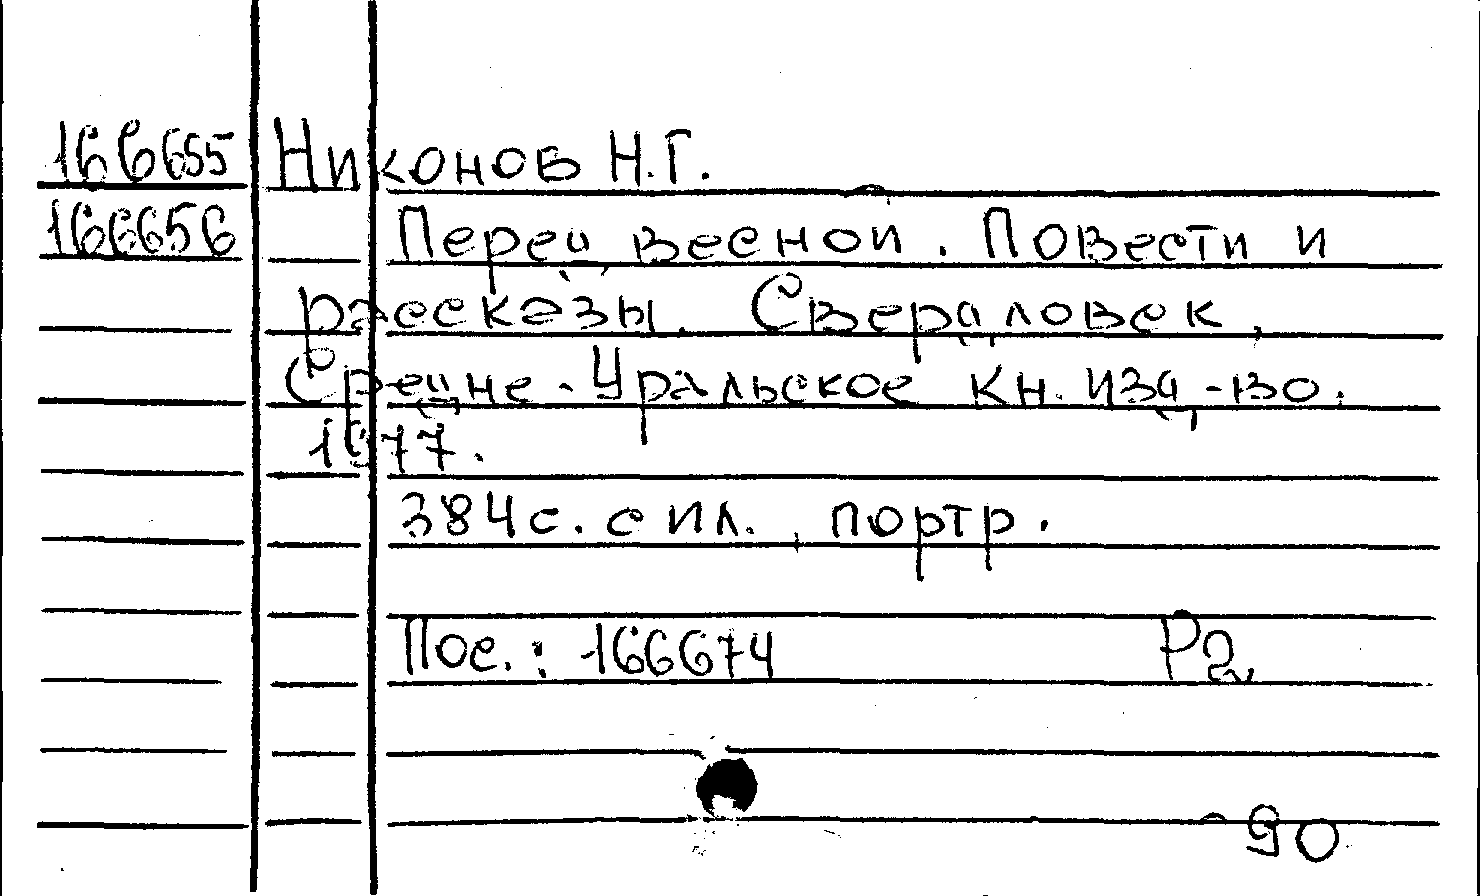 166655 Никонов Н.Г.
166656 Перед весной. Повести и
рассказы. Свердловск,
Средне-Уральское кн. изд-во.
1977.
384с. с ил., портр.
Пос.: 166674 Р2
90